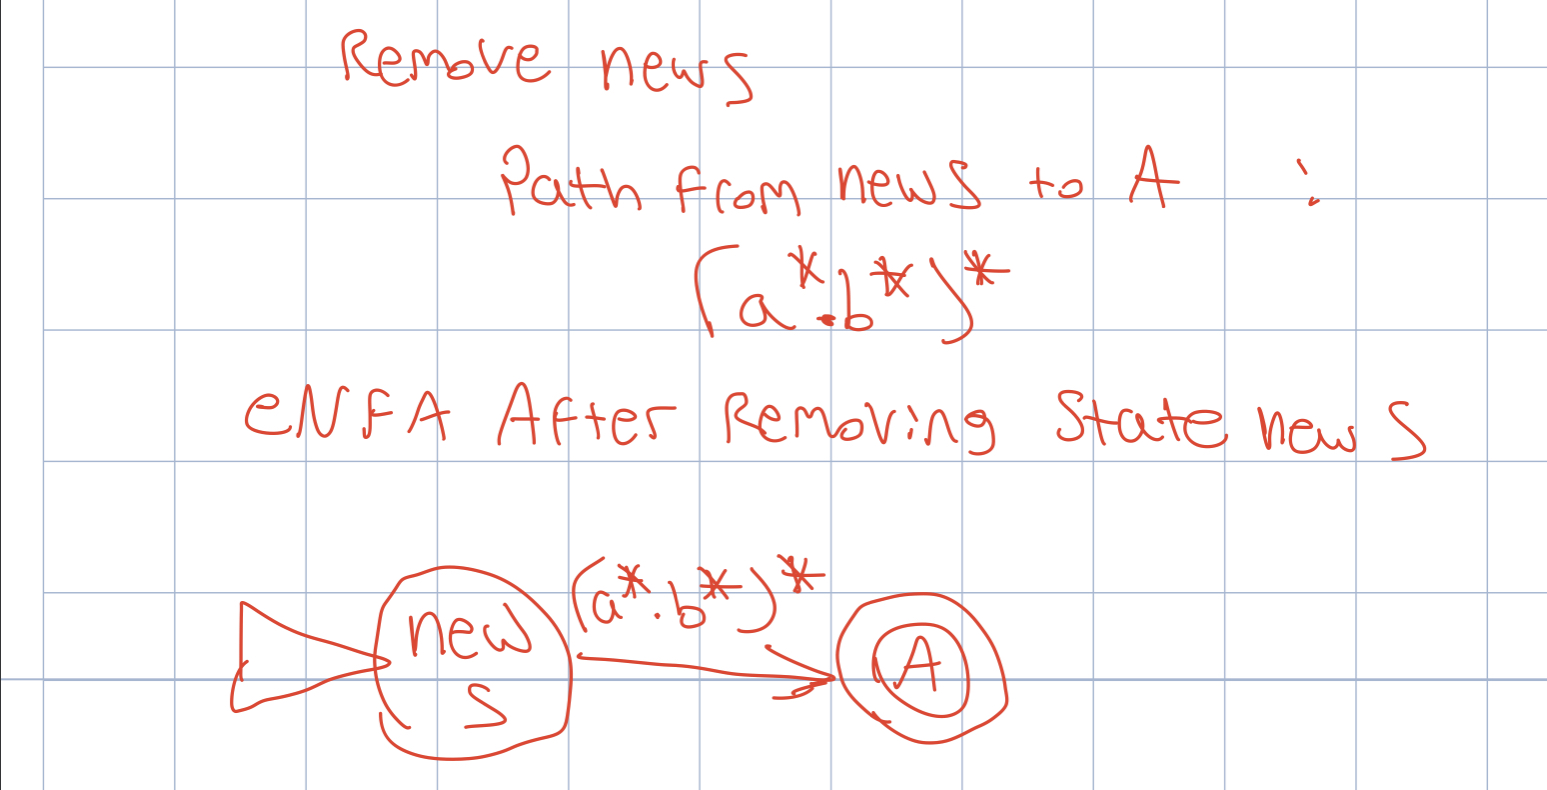 Remove news
Path from news to A :
(a*.b*)*
eNFA After Removing State new S
(a*.b*)*
new
S
A